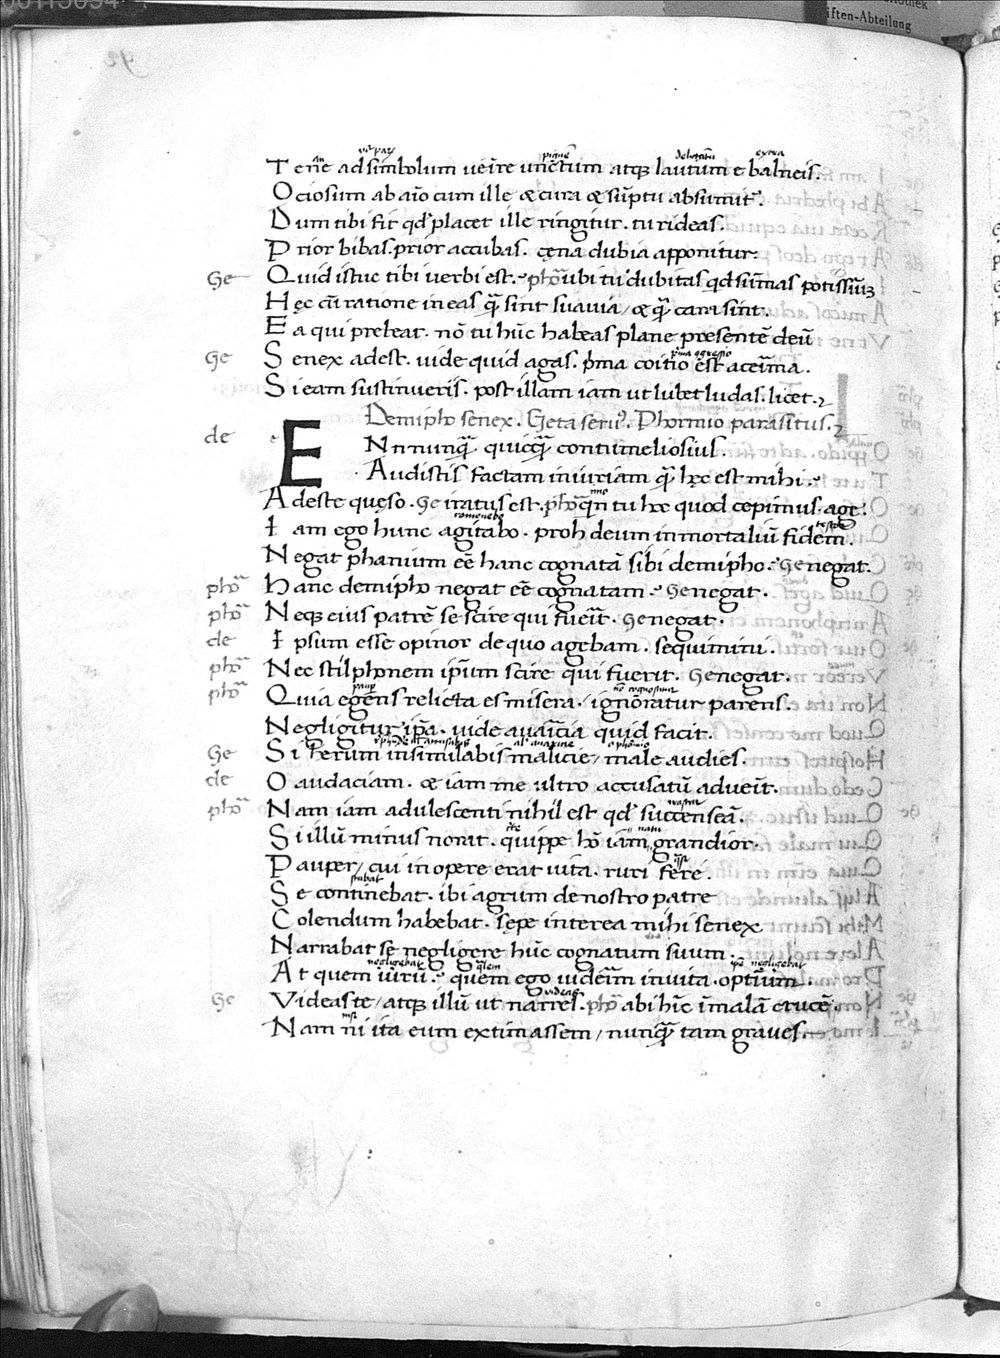 Tene ad simbolum uenire unctum atq; lautum e balneis.
Ociosum ab aĩo cum ille & cura & sũptu absumit̃.
Dum tibi fit qd' placet ille ringitur. tu rideas.
Prior bibas. prior accubas. cęna dubia apponitur.
Ge Quid istuc tibi uerbi est. phõ ubi tu dubitas qd sũmas potissiũ;
Hęc cũ ratione ineas q̃ sint suauia / & q̃ cara sint.
Ea qui prebeat. nõ tu hũc habeas plane presentẽ deũ
Ge Senex adest. uide quid agas. p̃ma coitio est acerĩma.
Si eam sustinueris. post illam iam ut lubet ludas. licet.
Demipho senex. Geta seru'. Phormio parasitus.
de ENn nunq̃. quicq̃ contumeliosius.
Audistis factam iniuriam q̃ hęc est mihi.
Adeste queso. Ge iratus est. phõ q̃n tu hoc quod cepimus age.
Iam ego hunc agitabo. proh deum inmortaliũ fidem.
Negat phanium eẽ hanc cognatã sibi demipho. Ge negat.
phõ Hanc demipho negat eẽ cognatam. Ge negat.
phõ Neq; eius patrẽ se scire qui fuerit. Ge negat.
de Ipsum esse opinor de quo agebam. sequimini.
phõ Nec stilphonem ip̃um scire qui fuerit. Ge negat.
phõ Quia egens relicta es misera. ignoratur parens.
Negligitur ip̃a. uide auaricia quid facit.
Ge Si herum insimilabis malicie / male audies.
de O audaciam. & iam me ultro accusatũ aduenit.
phõ Nam iam adulescenti nihil est qd' succenseã.
Si illũ minus norat. quippe hõ iam grandior.
Pauper / cui in opere erat uita. ruri fere.
Se continebat. ibi agrum de nostro patre
Colendum habebat. sępe interea mihi senex
Narrabat se negligere hũc cognatum suum.
At quem uirũ. quem ego uiderim in uita. optimum.
Ge Videas te / atq; illũ ut narres. phõ abi hĩc ĩ malã crucẽ.
Nam ni ita eum extimassem / nunq̃ tam graues